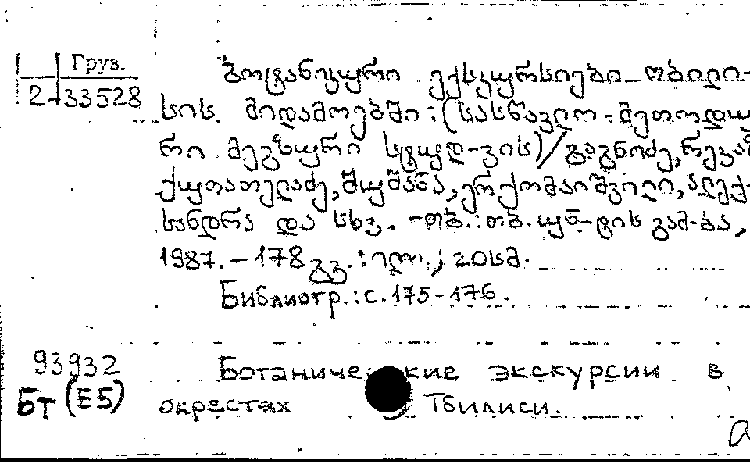 Груз.
2-33528
ბოტანიკური ექსკურსიები თბილი-
სის მიდამოებში : (სასწავლო-მეთოდუ
რი მეგზური სტუდ-ვის) / გაგნიძე, რევაზ
ქუთათელაძე, შუშანა, ერქომაიშვილი, ალექ-
სანდრა და სხვ. - თბ. : თბ. უნ-ტის გამ-ბა,
1987. - 178 გვ. : ილ. ; 20 სმ.
Библиогр.: с. 175-176.
93932
Ботанические экскурсии в
БТ (Е5)
окрестах Тбилиси.